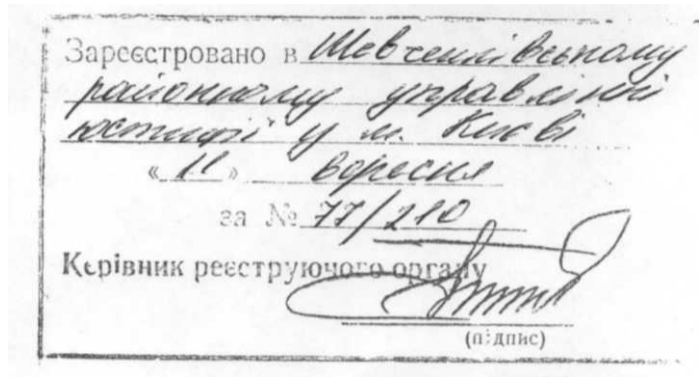 Зареєстровано в Шевченківському
районному управлінні
юстиції у м. Києві
« 11 » вересня
за № 77/210
Керівник реєструючого органу
(підпис)